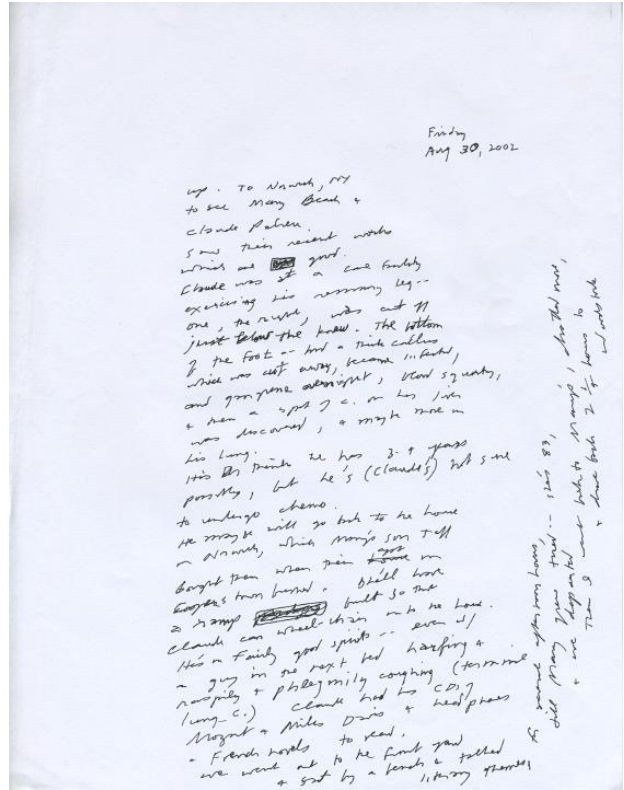 Friday
Aug 30, 2002
up. To Norwich, NY
to see Mary Beach &
Claude Pelieu.
Saw their recent works
which are good.
Claude was at a care facility
exercising his remaining leg --
one, the right, was cut off
just below the knee. The bottom
of the foot -- had a thick callus
which was cut away, became infected,
and gangrene overnight,
& then a spot of c. on his liver
was discovered, & maybe more in
his lung.
thinks he has 3-4 years
possibly, but he's (Claude's) not sure
to undergo chemo.
He maybe will go back to the house
in Norwich, which Mary's son Jeff
bought them when their apt in
Cooperstown burned.
a ramp built so that
Claude can wheel-chair into the house.
He's in fairly good spirits -- even w/
a guy in the next bed barfing &
raspily & phlegmily coughing (terminal
lung c.) Claude had his CDs of
Mozart & Miles Davis & headphones
& French novels to read.
We went out to the front yard
& sat by a bench & talked
literary
afternoon hours,
till Mary grew tired -- she's 83,
& we departed
Then I went back to Mary's, chatted more,
& drove back 2 1/4 hours to
Woodstock